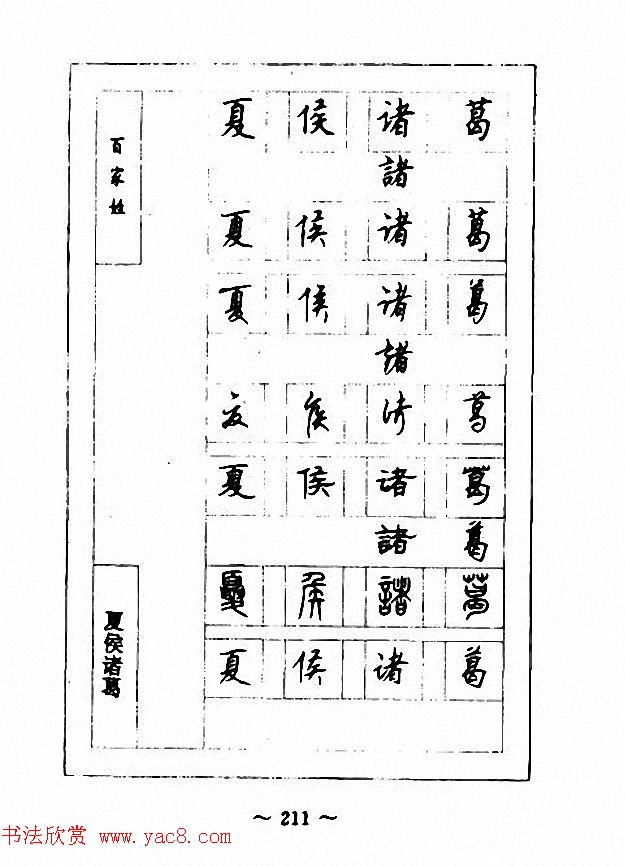 百家姓
夏侯诸葛
夏 侯 诸 葛
諸
夏 侯 诸 葛
夏 侯 诸 葛
諸
夏 侯 诸 葛
夏 侯 诸 葛
諸 葛
夏 侯 諸 葛
夏 侯 诸 葛
~ 211 ~
书法欣赏 www.yac8.com